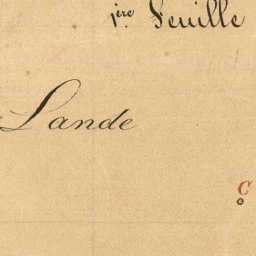 1ère Feuille
Lande
C